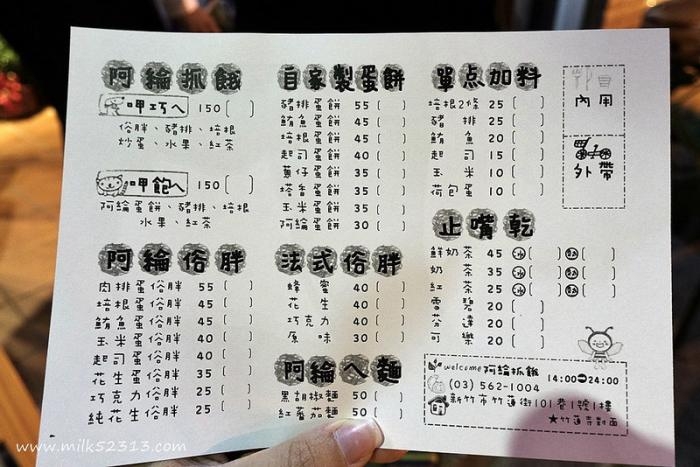 阿綸抓餓
呷巧ㄟ 150 [ ]
俗胖、豬排、培根
炒蛋、水果、紅茶
呷飽ㄟ 150 [ ]
阿綸蛋餅、豬排、培根
水果、紅茶
阿綸俗胖
肉排蛋俗胖 55 [ ]
培根蛋俗胖 45 [ ]
鮪魚蛋俗胖 40 [ ]
玉米蛋俗胖 40 [ ]
起司蛋俗胖 40 [ ]
花生蛋俗胖 35 [ ]
巧克力俗胖 25 [ ]
純花生俗胖 25 [ ]
自家製蛋餅
豬排蛋餅 55 [ ]
鮪魚蛋餅 45 [ ]
培根蛋餅 45 [ ]
起司蛋餅 40 [ ]
蔥仔蛋餅 35 [ ]
塔香蛋餅 35 [ ]
玉米蛋餅 35 [ ]
阿綸蛋餅 30 [ ]
法式俗胖
蜂蜜 40 [ ]
花生 40 [ ]
巧克力 40 [ ]
原味 30 [ ]
阿綸ㄟ麵
黑胡椒麵 50 [ ]
紅蕃茄麵 50 [ ]
單点加料
培根2條 25 [ ]
肉排 25 [ ]
鮪魚 20 [ ]
起司 15 [ ]
玉米 10 [ ]
荷包蛋 10 [ ]
止嘴乾
鮮奶茶 45 冰[ ] 熱[ ]
奶茶 35 冰[ ] 熱[ ]
紅茶 25 冰[ ] 熱[ ]
雪碧 20 [ ]
芬達 20 [ ]
可樂 20 [ ]
內用
外帶
welcome 阿綸抓餓
(03) 562-1004 14:00-24:00
新竹市竹蓮街101巷1號1樓
★竹蓮寺對面
www.milk52313.com